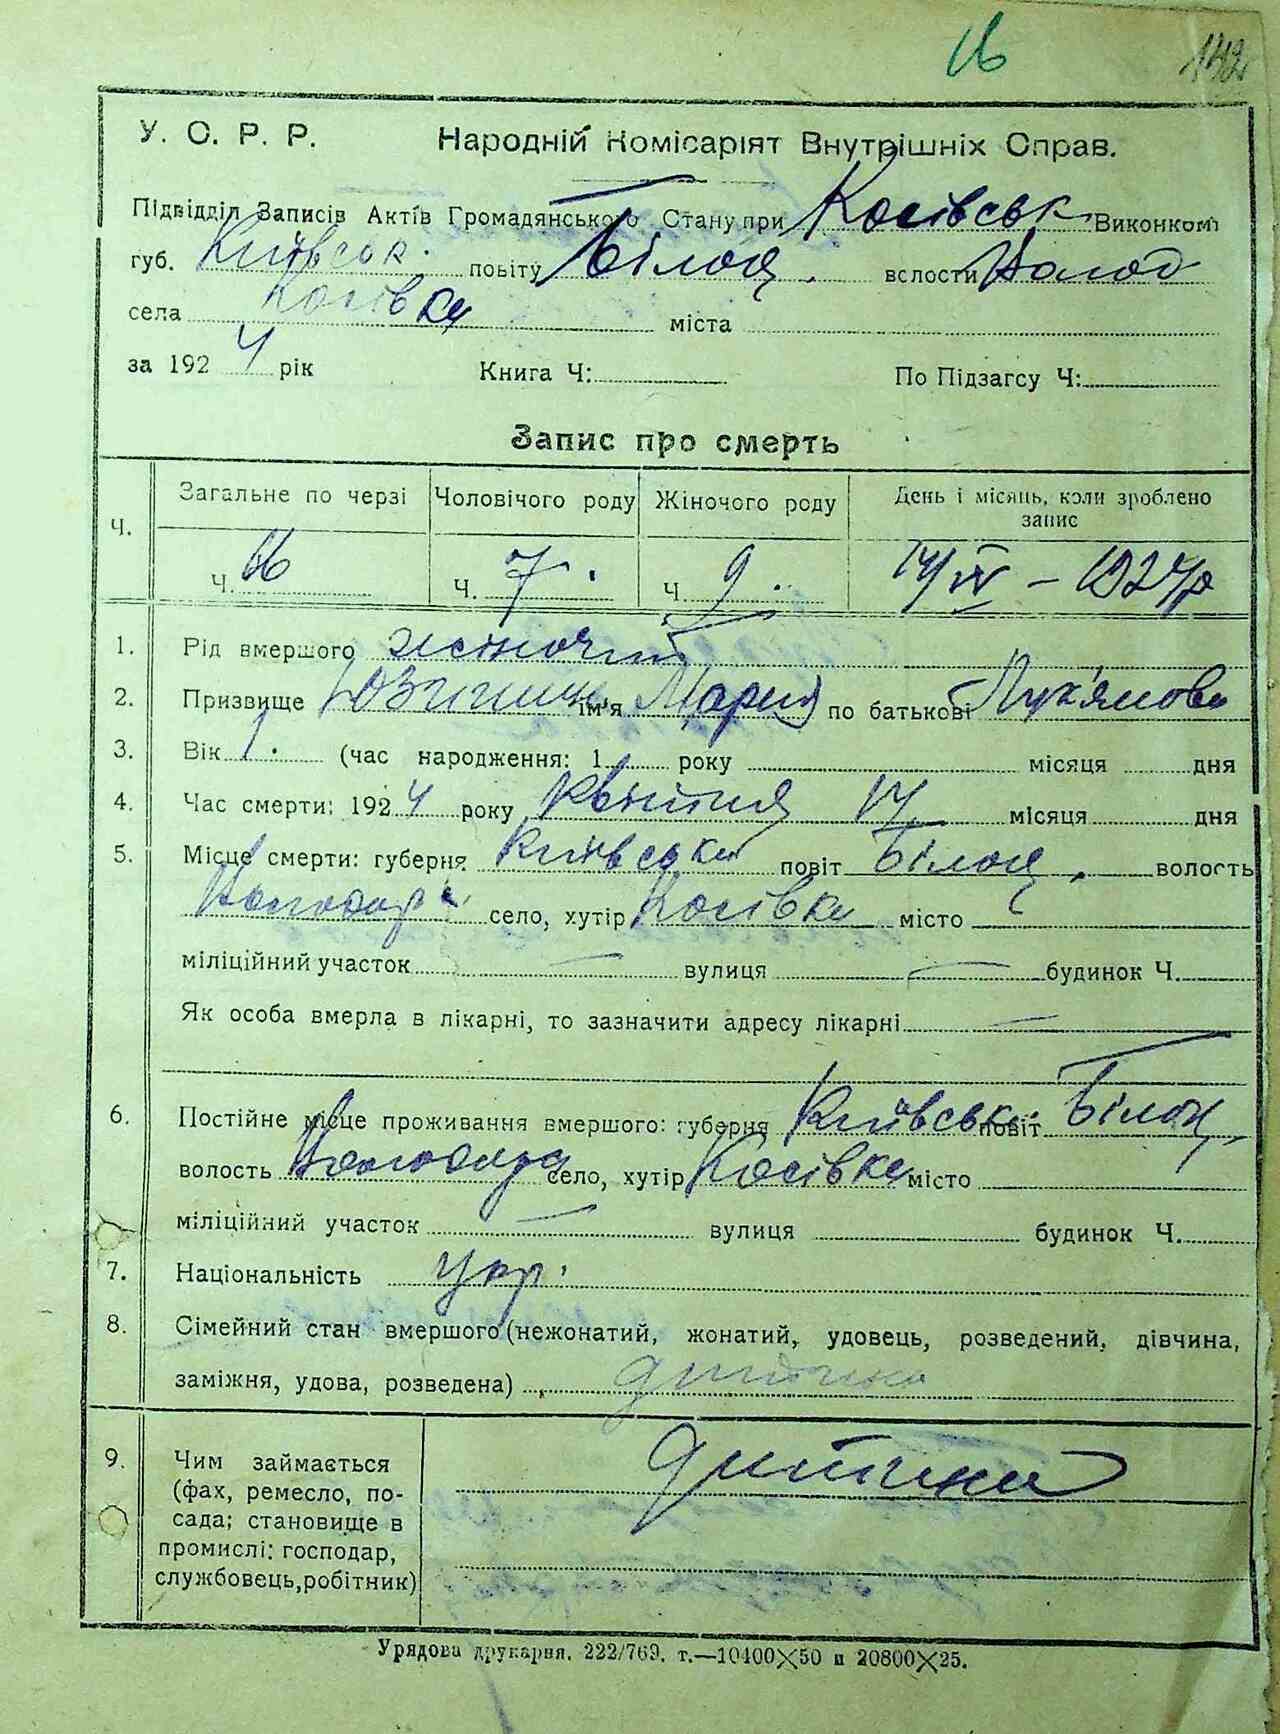 16 142
У. О. Р. Р. Народній Комісаріят Внутрішніх Справ.
Підвідділ Записів Актів Громадянського Стану при Косівськ Виконкомі
губ. Київськ. повіту Білоц. волости Волод
села Косівка міста
за 1924 рік Книга Ч: По Підзагсу Ч:
Запис про смерть
Ч. Загальне по черзі Чоловічого роду Жіночого роду День і місяць, коли зроблено
запис
Ч. 16 Ч. 7. Ч. 9. 14/IV – 1924 р
1. Рід вмершого жіночий
2. Призвище ім'я Мария по батькові Лук'янова
3. Вік 1. (час народження: 1 року місяця дня
4. Час смерти: 1924 року квітня 14 місяця дня
5. Місце смерти: губерня Київська повіт Білоц. волость
Володар. село, хутір Косівка місто
міліційний участок — вулиця — будинок Ч.
Як особа вмерла в лікарні, то зазначити адресу лікарні —
6. Постійне місце проживання вмершого: губерня Київська повіт Білоц.
волость село, хутір Косівка місто
міліційний участок — вулиця будинок Ч.
7. Національність Укр.
8. Сімейний стан вмершого (нежонатий, жонатий, удовець, розведений, дівчина,
заміжня, удова, розведена) дитина
9. Чим займається дитина
(фах, ремесло, по-
сада; становище в
промислі: господар,
службовець, робітник)
Урядова друкарня. 222/769. т.—10400×50 и 20800×25.